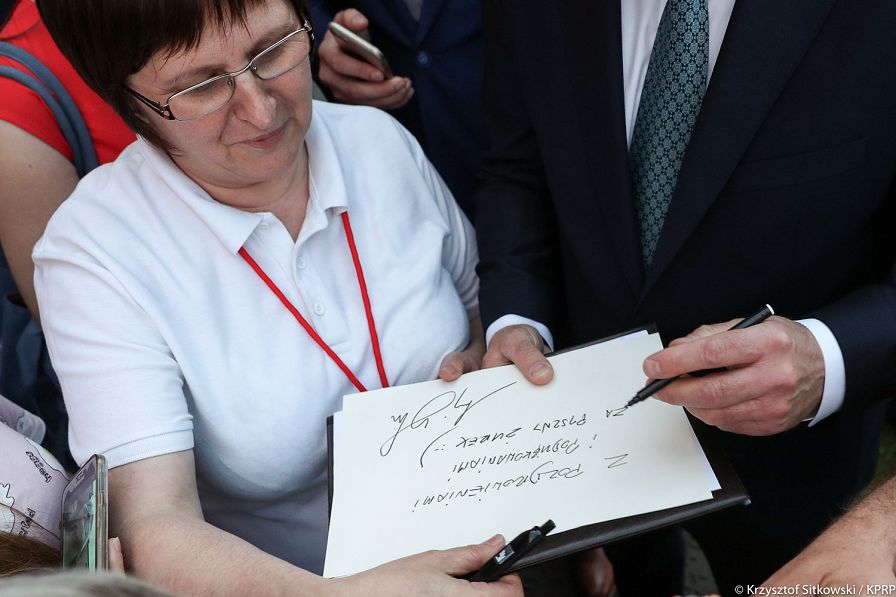 Z POZDROWIENIAMI
i PODZIĘKOWANIAMI
ZA
PYSZNY ŻUREK :)
© Krzysztof Sitkowski / KPRP